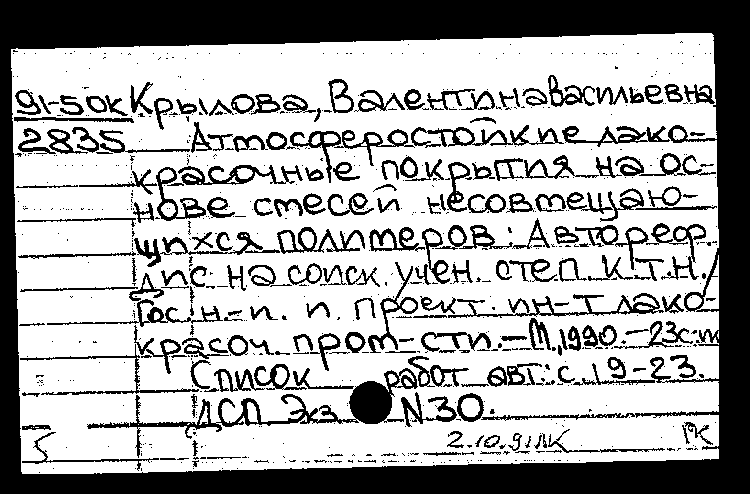 91-50К Крылова, Валентина Васильевна
2835 Атмосферостойкие лако-
красочные покрытия на ос-
нове смесей несовмещаю-
щихся полимеров: Автореф.
дис. на соиск. учен. степ. к.т.н./
Гос. н.-и. и проект. ин-т лако-
красоч. пром-сти. - М., 1990. - 23с.
Список работ авт.: с. 19-23.
ДСП Экз N 30.
2.10.91